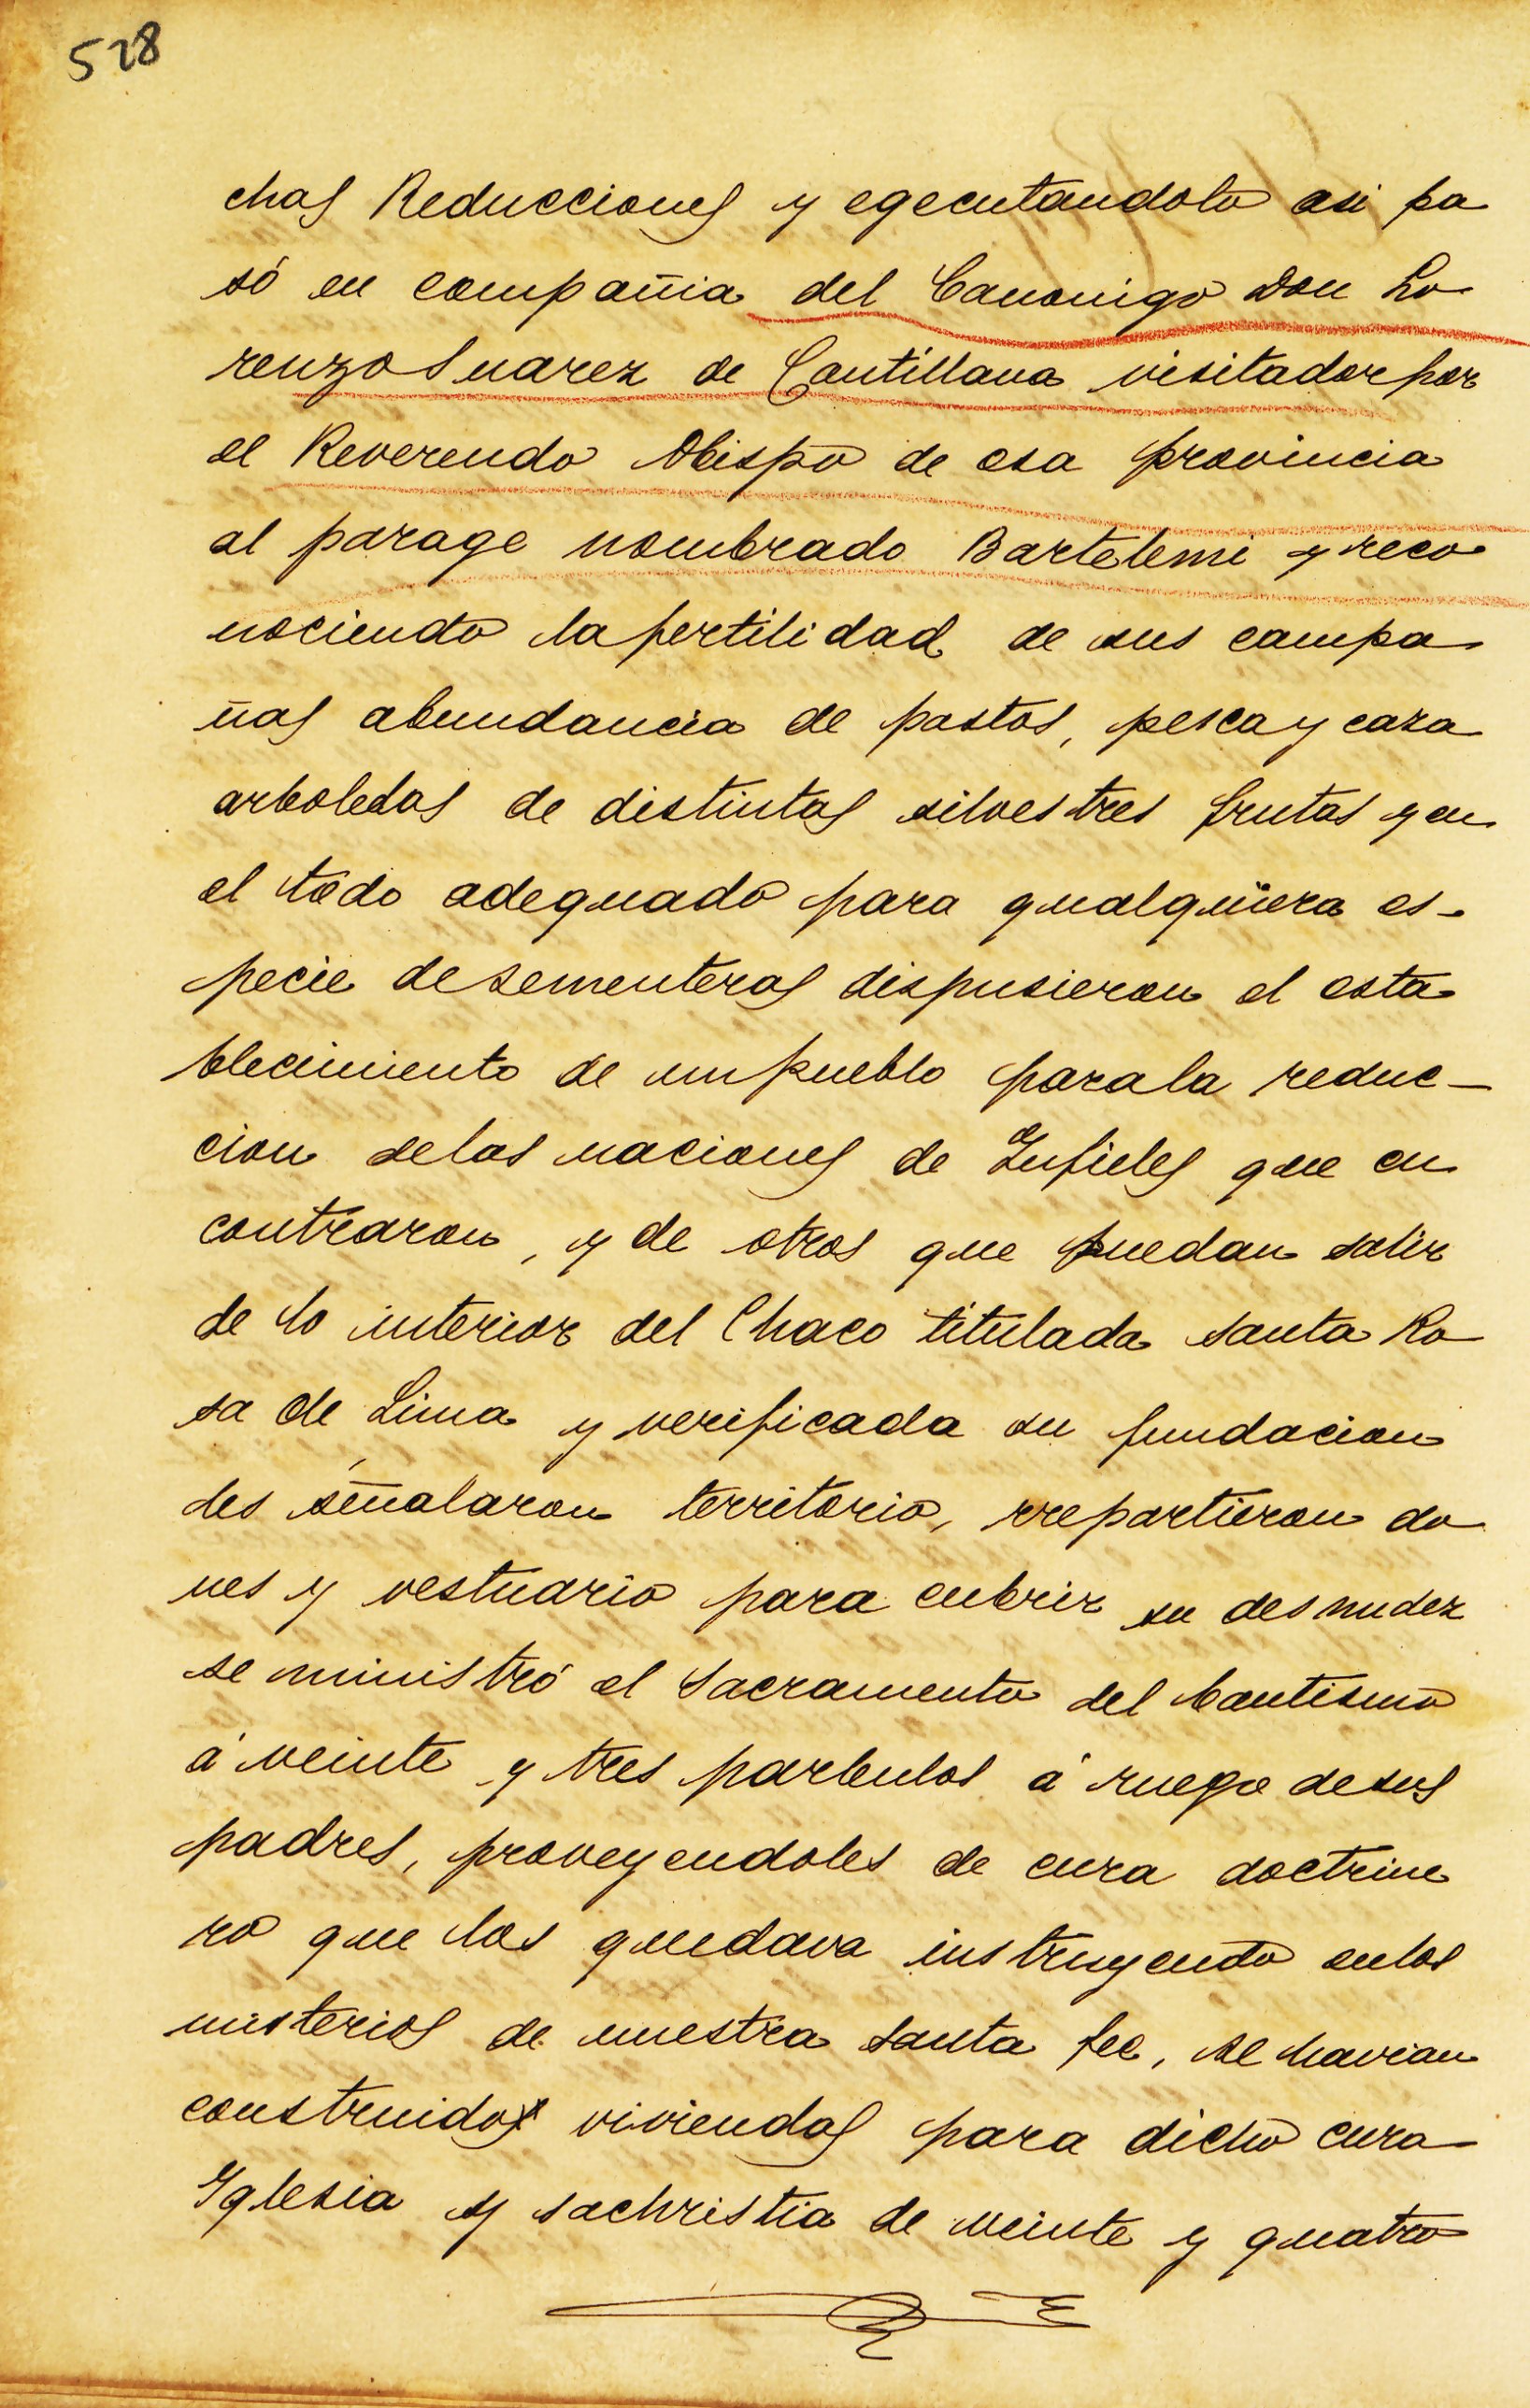 528
chas Reducciones y egecutandolo asi pa
só en compañia del Canonigo Don Lo
renzo Suarez de Cantillana visitador por
el Reverendo Obispo de esa provincia
al parage nombrado Bartelemi y reco
nociendo la fertilidad de sus campa
ñas abundancia de pastos, pesca y caza
arboledas de distintas silvestres frutas y en
el todo adequado para qualquiera es-
pecie de sementeras dispusieron el esta
blecimiento de un pueblo para la reduc-
cion de las naciones de Infieles que en
contraron, y de otros que puedan salir
de lo interior del Chaco titulada santa Ro
sa de Lima y verificada su fundacion
les señalaron territorio, rrepartieron do
nes y vestuario para cubrir su desnudez
se ministró el Sacramento del bautismo
á veinte y tres parbulos á ruego de sus
padres, proveyendoles de cura doctrine
ro que los quedava instruyendo en los
misterios de nuestra santa fee, se havian
construidos viviendas para dicho cura
Yglesia y sachristia de veinte y quatro